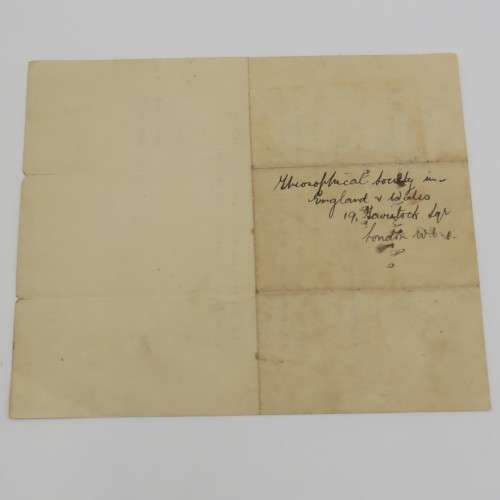 Theosophical Society in
England & Wales
19, Tavistock Sqr
London W.C.